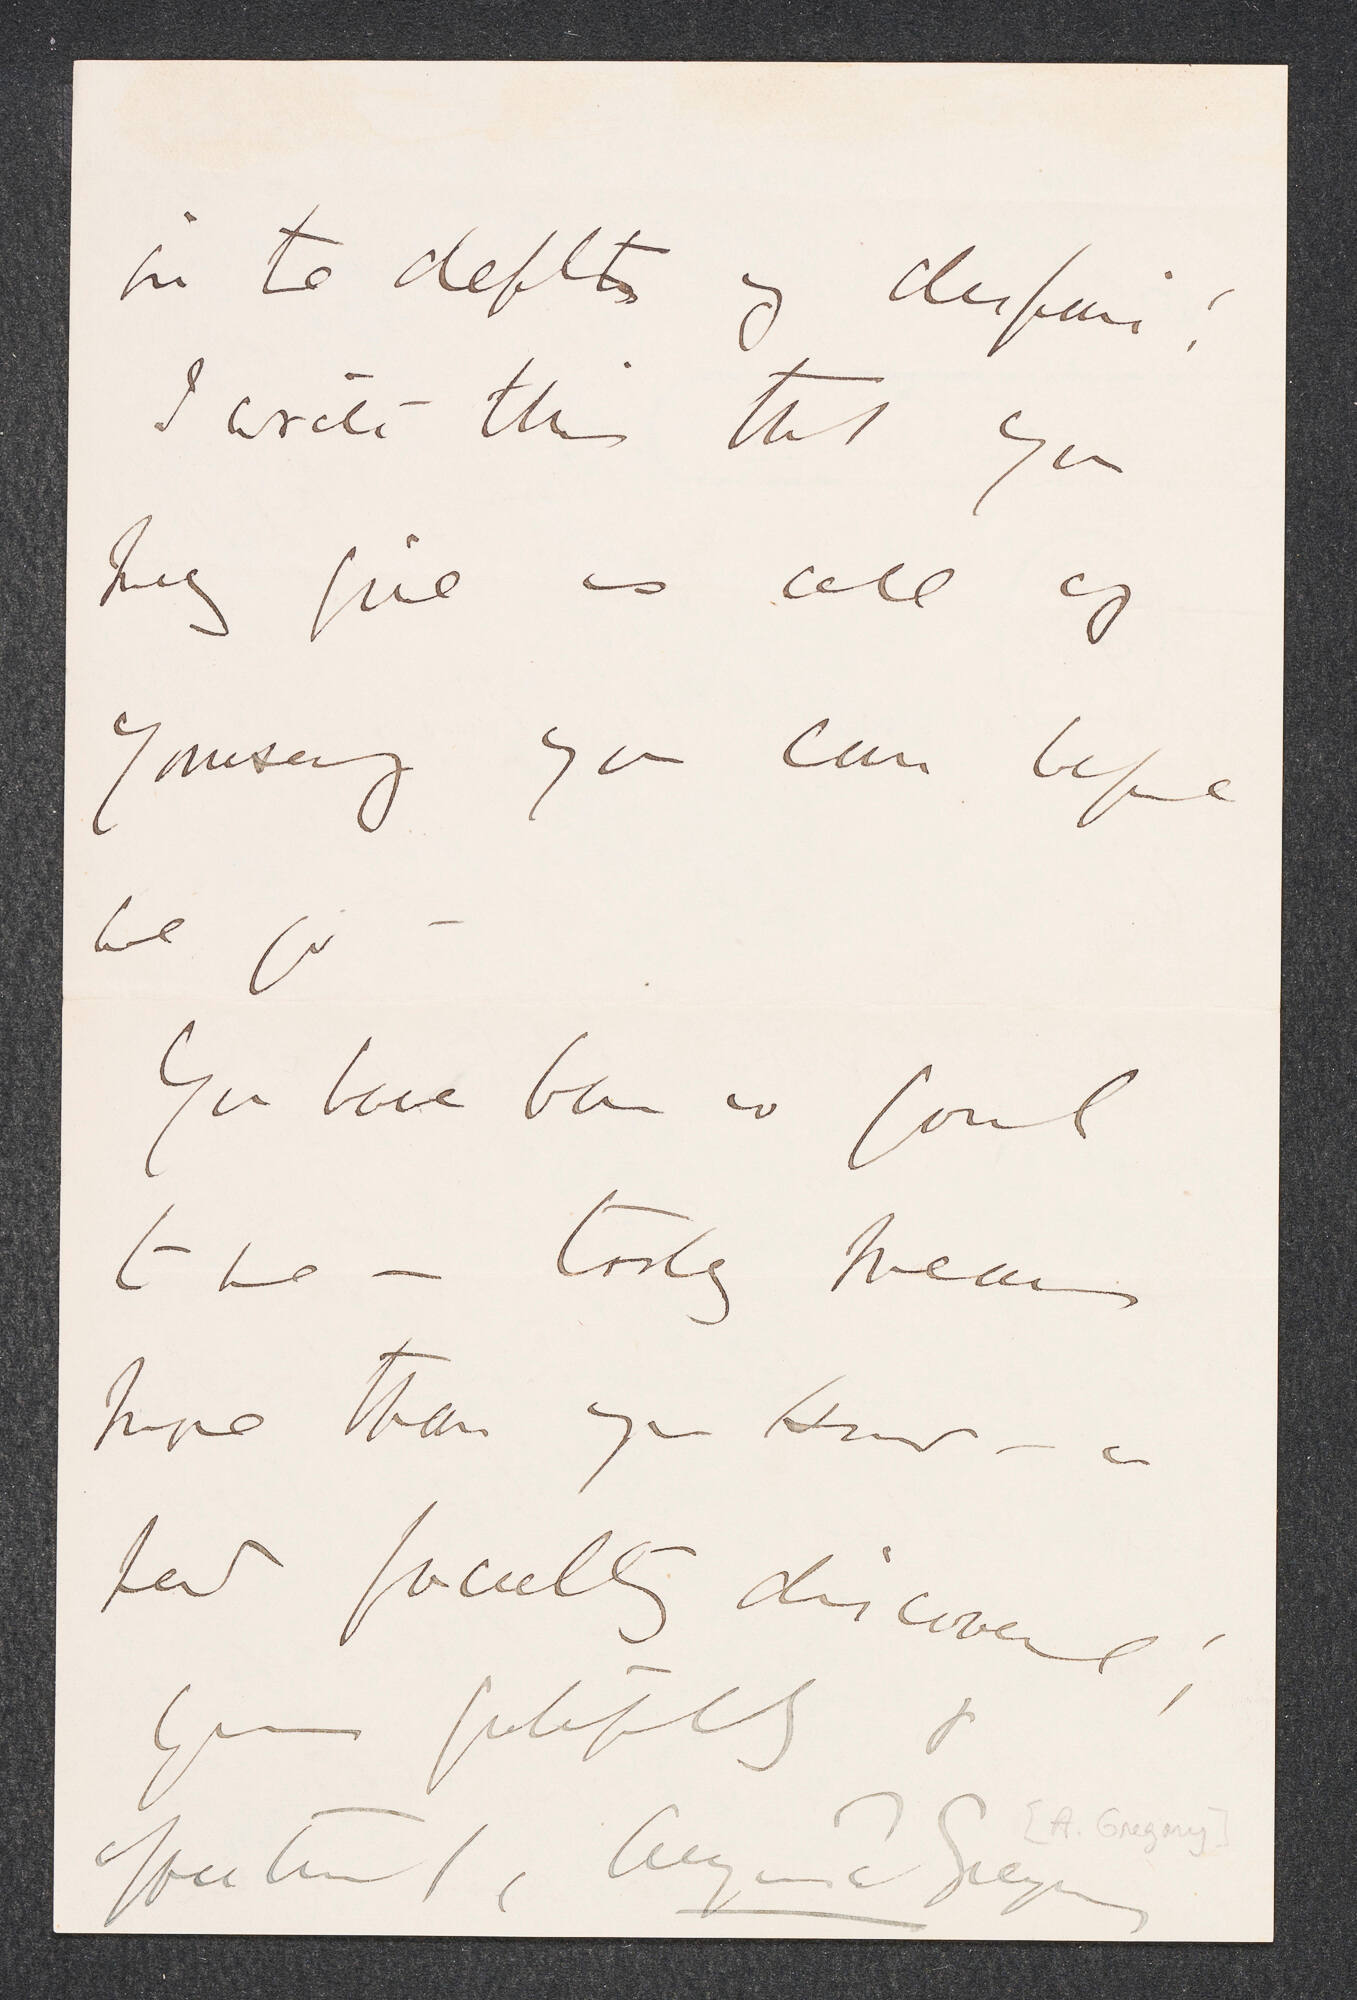 in the depths of despair!
I write this that you
may give us all of
yourself you can before
we go -
You have been so good
to me - truly means
more than you know - a
new faculty discovered!
Yours gratefully &
affectionately, Augusta Gregory
[A. Gregory]